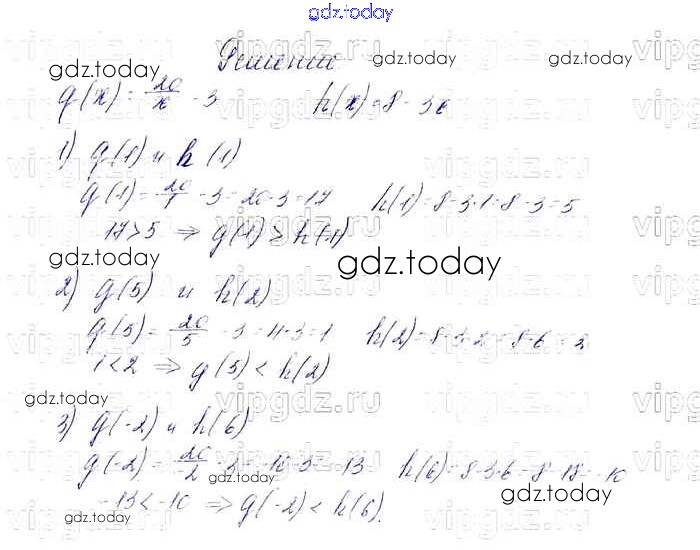 gdz.today
Решение
g(x) = 20/x - 3 h(x) = 8 - 3x
1) g(1) и h(1)
g(1) = 20/1 - 3 = 20-3 = 17 h(1) = 8-3·1 = 8-3 = 5
17 > 5 ⇒ g(1) > h(1)
2) g(5) и h(2)
g(5) = 20/5 - 3 = 4-3 = 1 h(2) = 8-3·2 = 8-6 = 2
1 < 2 ⇒ g(5) < h(2)
3) g(-2) и h(6)
g(-2) = 20/-2 - 3 = -10-3 = -13 h(6) = 8-3·6 = 8-18 = -10
-13 < -10 ⇒ g(-2) < h(6).
gdz.today
gdz.today
gdz.today
gdz.today
gdz.today
gdz.today
gdz.today
gdz.today
vipgdz.ru
vipgdz.ru
vipgdz.ru
vipgdz.ru